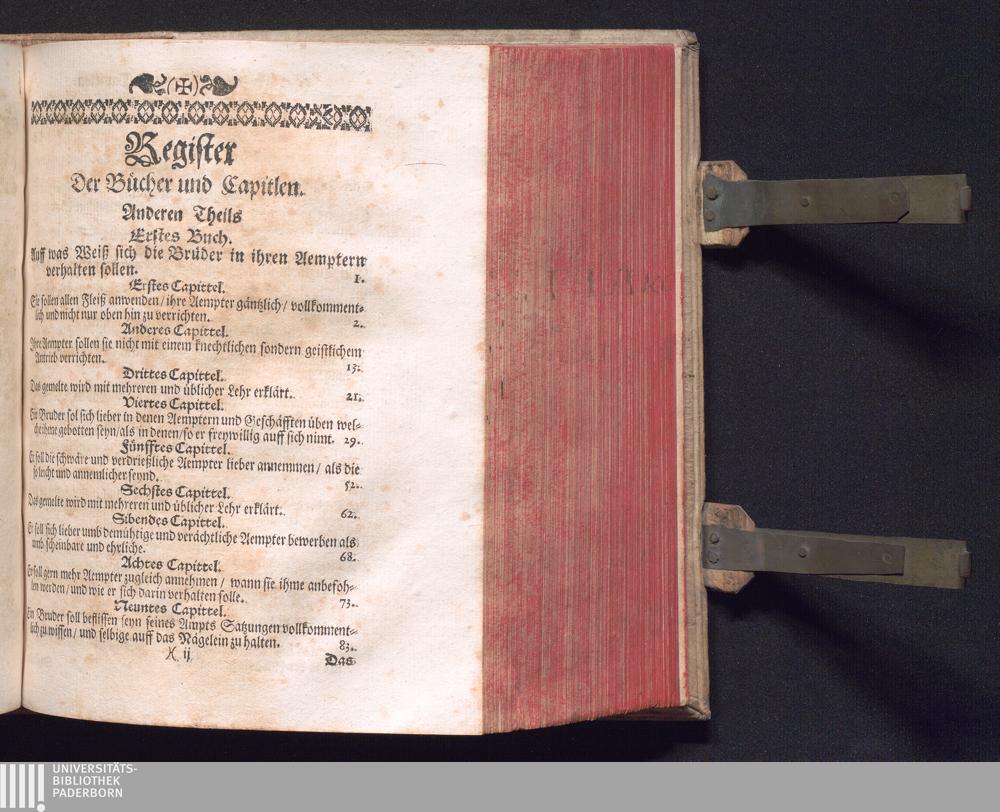 (✠)
Register
Der Bücher und Capitlen.
Anderen Theils
Erstes Buch.
Auff was Weiß sich die Brüder in ihren Aemptern
verhalten sollen. 1.
Erstes Capittel.
Sie sollen allen Fleiß anwenden / ihre Aempter gäntzlich / vollkomment-
lich und nicht nur oben hin zu verrichten. 2.
Anderes Capittel.
Ihre Aempter sollen sie nicht mit einem knechtlichen sondern geistlichem
Antrieb verrichten. 13.
Drittes Capittel.
Das gemelte wird mit mehreren und üblicher Lehr erklärt. 21.
Viertes Capittel.
Ein Bruder sol sich lieber in denen Aemptern und Geschäfften üben wel-
che ihme gebotten seyn / als in denen / so er freywillig auff sich nimt. 29.
Fünfftes Capittel.
Er soll die schwäre und verdrießliche Aempter lieber annemmen / als die
so leicht und annemlicher seynd. 52.
Sechstes Capittel.
Das gemelte wird mit mehreren und üblicher Lehr erklärt. 62.
Sibendes Capittel.
Er soll sich lieber umb demühtige und verächtliche Aempter bewerben als
umb scheinbare und ehrliche. 68.
Achtes Capittel.
Er soll gern mehr Aempter zugleich annehmen / wann sie ihme anbefoh-
len werden / und wie er sich darin verhalten solle. 73.
Neuntes Capittel.
Ein Bruder soll beflissen seyn seines Ampts Satzungen vollkomment-
lich zu wissen / und selbige auff das Nägelein zu halten. 83.
)( ij Das
UNIVERSITÄTS-
BIBLIOTHEK
PADERBORN